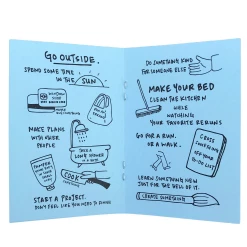 GO OUTSIDE.
SPEND SOME TIME
IN THE SUN
MAKE PLANS
WITH OTHER
PEOPLE
TAKE A
LONG SHOWER
COOK
START A PROJECT.
DON'T FEEL LIKE YOU NEED TO FINISH
DO SOMETHING KIND
FOR SOMEONE ELSE
MAKE YOUR BED
CLEAN THE KITCHEN
WHILE
WATCHING
YOUR FAVORITE RERUNS
GO FOR A RUN.
OR A WALK.
CROSS
SOMETHING
OFF YOUR
TO-DO LIST
LEARN SOMETHING NEW
JUST FOR THE HELL OF IT.
CREATE SOMETHING